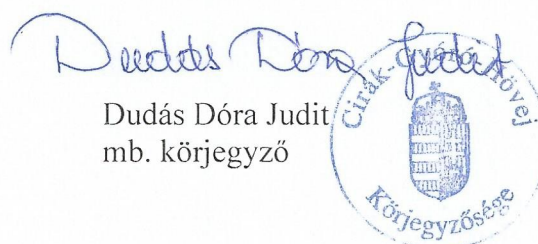 Dudás Dóra Judit
Dudás Dóra Judit
mb. körjegyző
Cirák-Gyóró-Kövej
Körjegyzősége